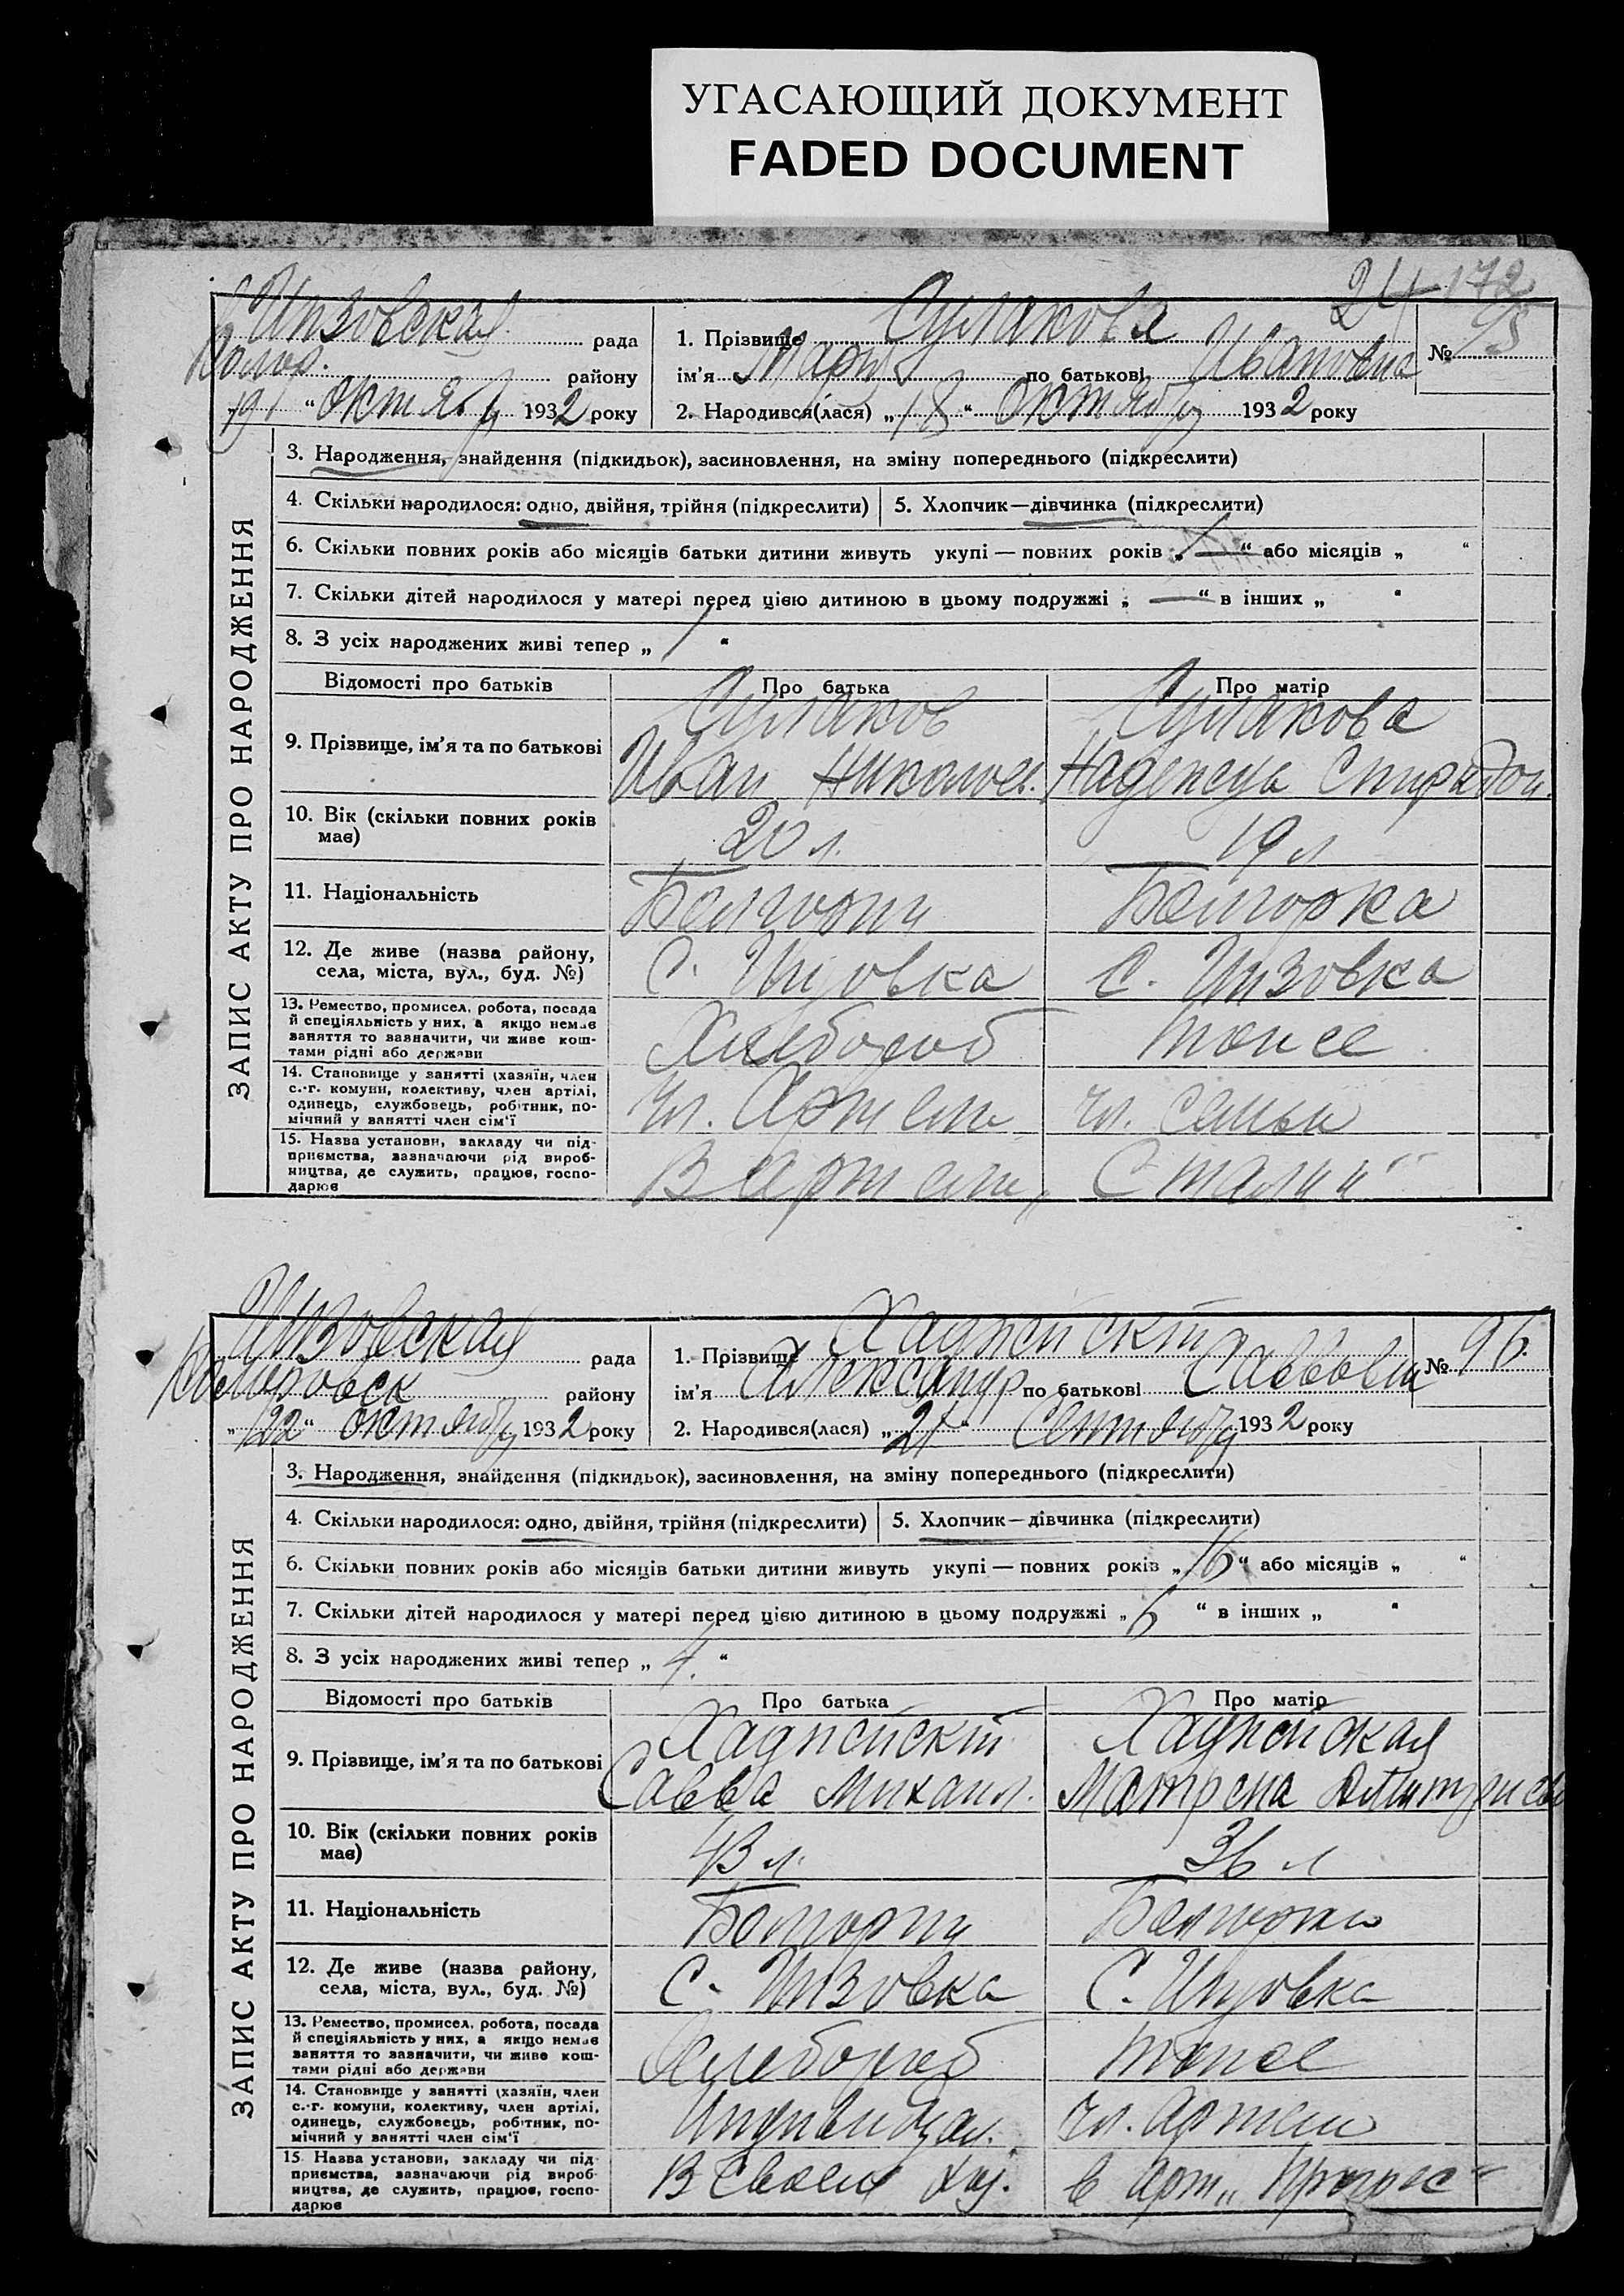 УГАСАЮЩИЙ ДОКУМЕНТ
FADED DOCUMENT
24 172
Инзовская рада
Комор. району
„19“ Октяб 1932 року
1. Прізвище Сулакова
ім'я Мария по батькові Ивановна
№ 95
2. Народився(лася) „18“ Октября 1932 року
ЗАПИС АКТУ ПРО НАРОДЖЕННЯ
3. Народження, знайдення (підкидьок), засиновлення, на зміну попереднього (підкреслити)
4. Скільки народилося: одно, двійня, трійня (підкреслити) 5. Хлопчик—дівчинка (підкреслити)
6. Скільки повних років або місяців батьки дитини живуть укупі — повних років „1“ або місяців „ “
7. Скільки дітей народилося у матері перед цією дитиною в цьому подружжі „ — “ в інших „ “
8. З усіх народжених живі тепер „ 1 “
Відомості про батьків Про батька Про матір
9. Прізвище, ім'я та по батькові
Сулаков
Иван Николаев.
Сулакова
Надежда Спиридон.
10. Вік (скільки повних років
має)
20 л. 19 л
11. Національність Болгорин Болгорка
12. Де живе (назва району,
села, міста, вул., буд. №)
С. Инзовка С. Инзовка
13. Ремество, промисел, робота, посада
й спеціяльність у них, а якщо немає
заняття то зазначити, чи живе кош-
тами рідні або держави
Хлебороб тоже
14. Становище у занятті (хазяїн, член
с.-г. комуни, колективу, член артілі,
одинець, службовець, робітник, по-
мічний у занятті член сім'ї
чл. Артели чл. семьи
15. Назва установи, закладу чи під-
приємства, зазначаючи рід вироб-
ництва, де служить, працює, госпо-
дарює
В Артели „Сталин“
Инзовская рада
Коларовск району
„22“ октября 1932 року
1. Прізвище Хаджийский
ім'я Александр по батькові Саввович
№ 96.
2. Народився(лася) „21“ Сентября 1932 року
ЗАПИС АКТУ ПРО НАРОДЖЕННЯ
3. Народження, знайдення (підкидьок), засиновлення, на зміну попереднього (підкреслити)
4. Скільки народилося: одно, двійня, трійня (підкреслити) 5. Хлопчик—дівчинка (підкреслити)
6. Скільки повних років або місяців батьки дитини живуть укупі — повних років „16“ або місяців „ “
7. Скільки дітей народилося у матері перед цією дитиною в цьому подружжі „6 “ в інших „ “
8. З усіх народжених живі тепер „ 4. “
Відомості про батьків Про батька Про матір
9. Прізвище, ім'я та по батькові
Хаджийский
Савва Михаил.
Хаджийская
Матрена Дмитриев
10. Вік (скільки повних років
має)
43 л. 36 л
11. Національність Болгорин Болгорка
12. Де живе (назва району,
села, міста, вул., буд. №)
С. Инзовка С. Инзовка
13. Ремество, промисел, робота, посада
й спеціяльність у них, а якщо немає
заняття то зазначити, чи живе кош-
тами рідні або держави
Хлебороб тоже
14. Становище у занятті (хазяїн, член
с.-г. комуни, колективу, член артілі,
одинець, службовець, робітник, по-
мічний у занятті член сім'ї
Индивидуал. чл. Артели
15. Назва установи, закладу чи під-
приємства, зазначаючи рід вироб-
ництва, де служить, працює, госпо-
дарює
В своем хоз. в Арт. „Прогрес“